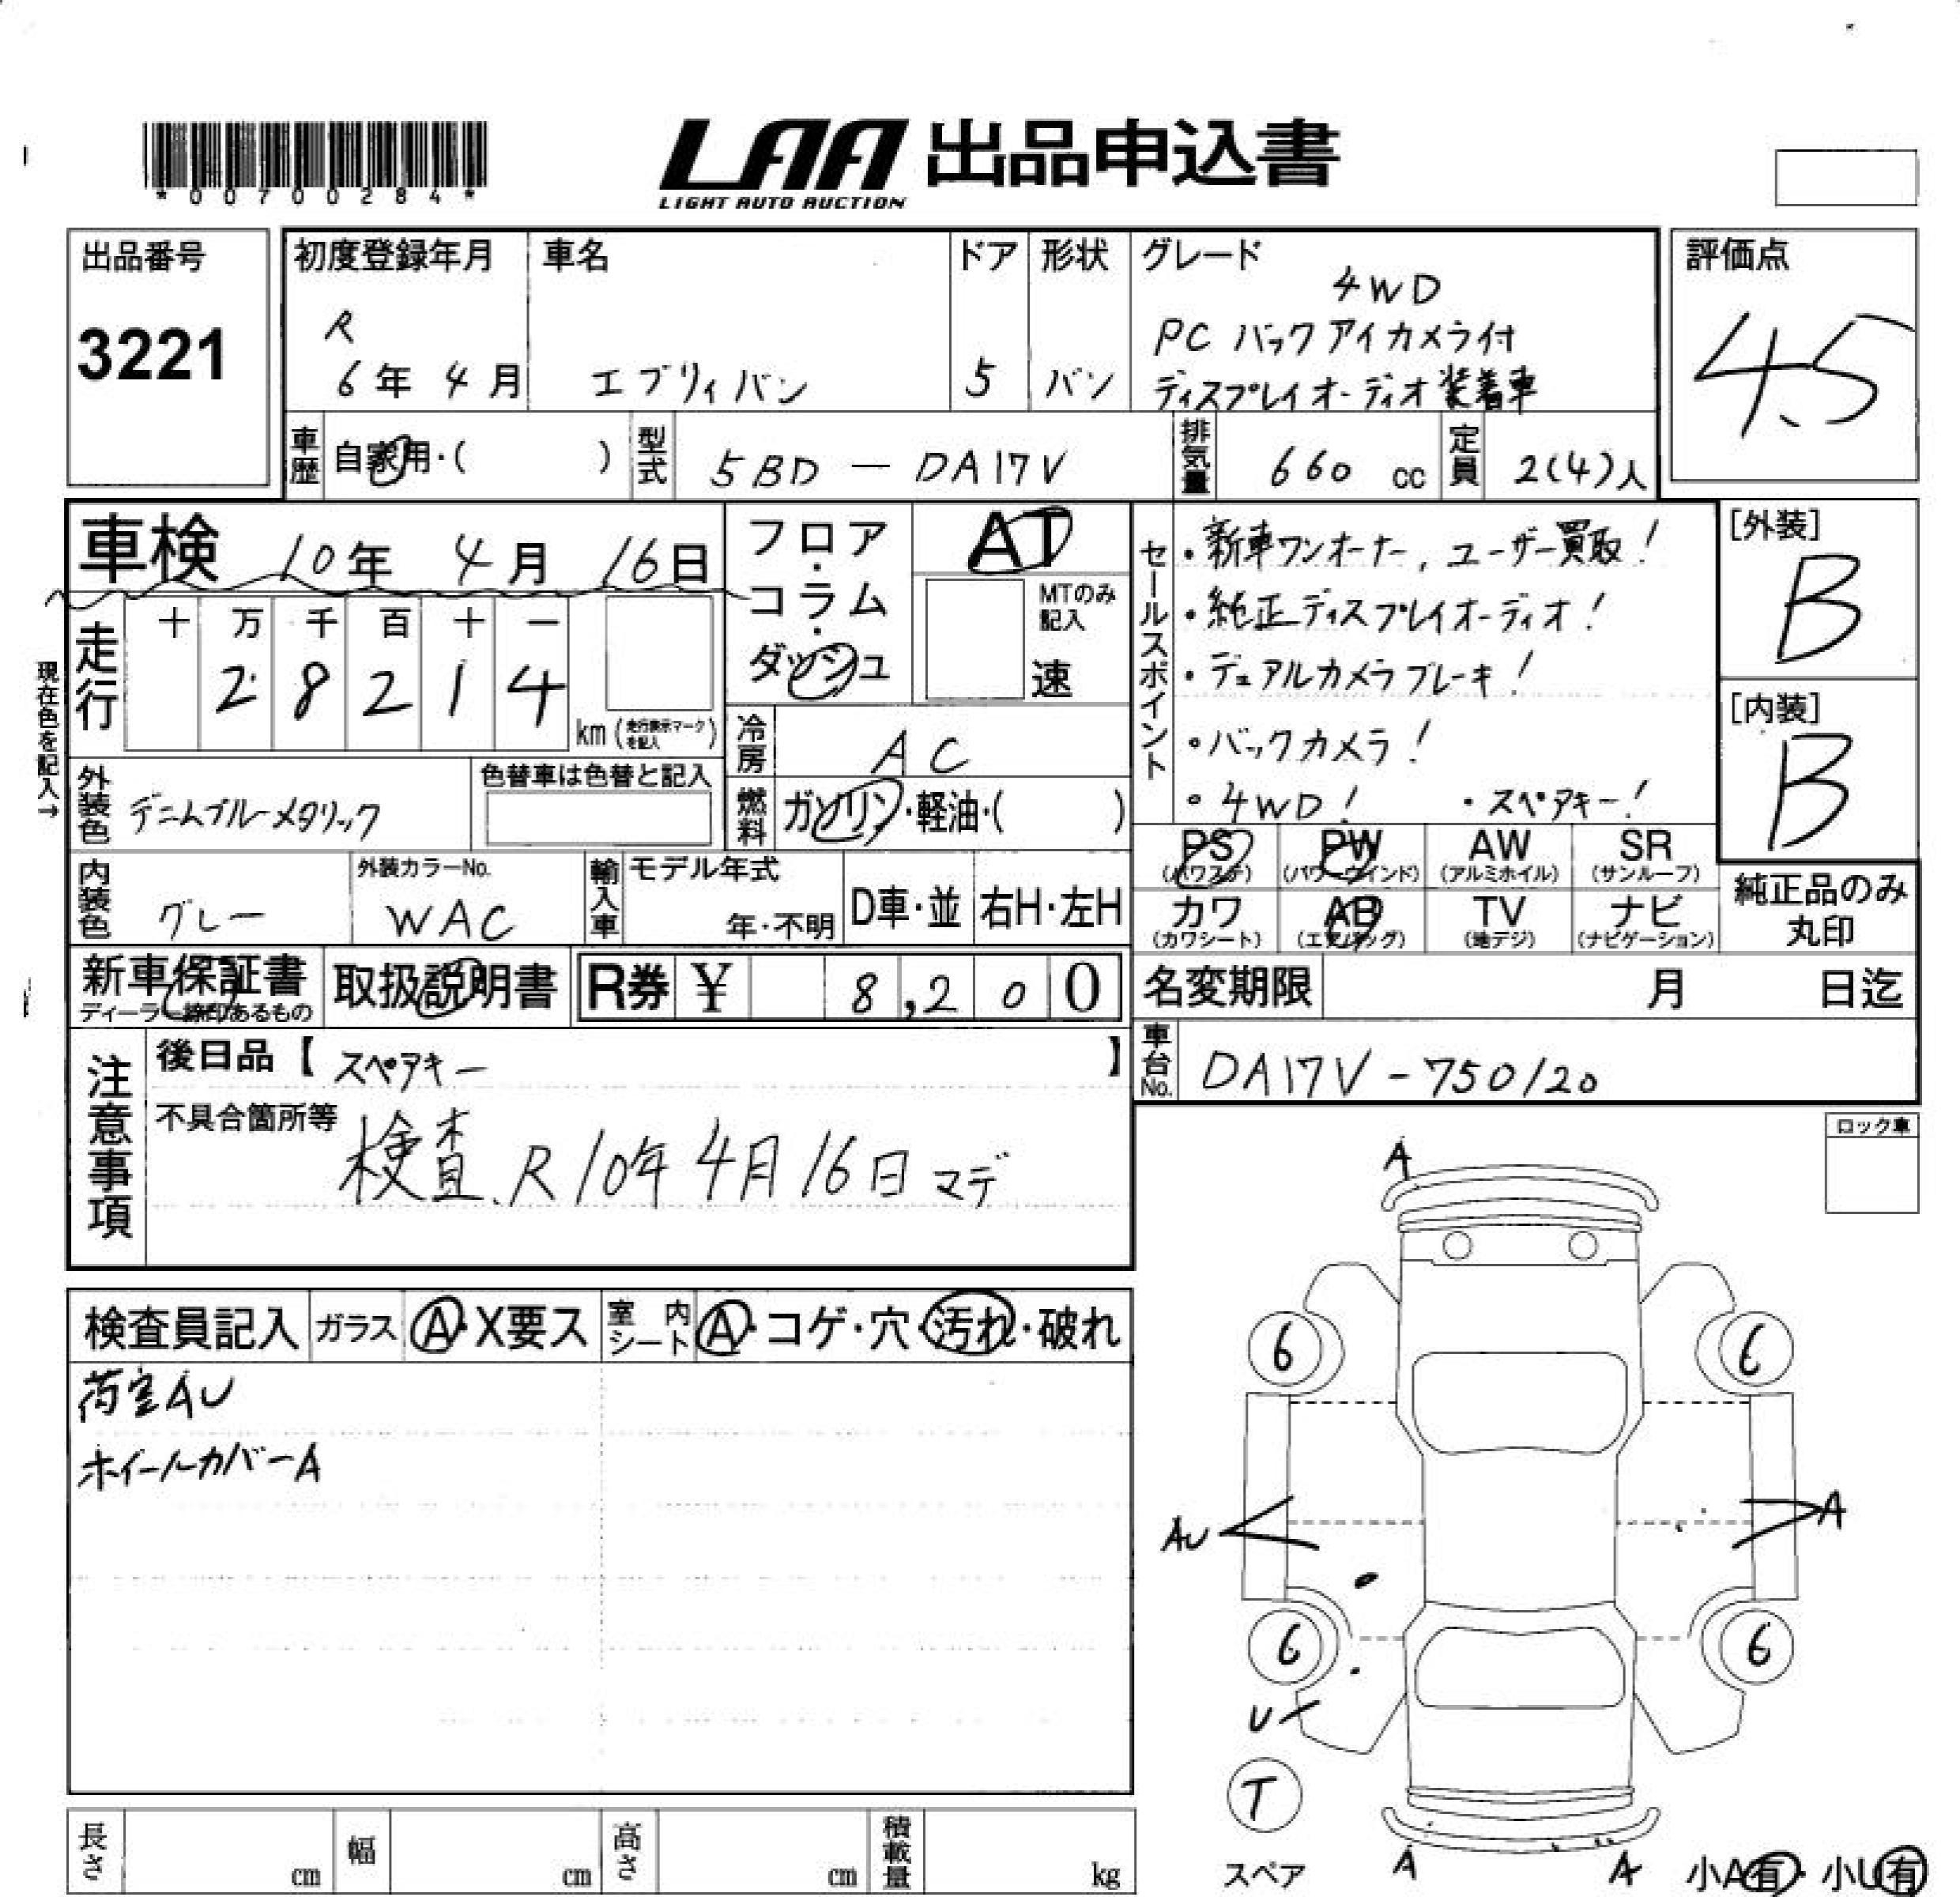 *00700284*
LAA 出品申込書
LIGHT AUTO AUCTION
出品番号
3221
初度登録年月
R
6年 4月
車名
エブリィバン
ドア
5
形状
バン
グレード
4WD
PC バックアイカメラ付
ディスプレイオーディオ装着車
評価点
4.5
車歴 自家用・( )
型式 5BD - DA17V
排気量 660 cc
定員 2(4)人
車検 10年 4月 16日
フロア・コラム・ダッシュ
AT
MTのみ記入
速
走行
十 万 千 百 十 一
2 8 2 1 4
km (走行表示マークを記入)
現在色を記入→
冷房 AC
燃料 ガソリン・軽油・( )
外装色 デニムブルーメタリック
色替車は色替と記入
内装色 グレー
外装カラーNo.
WAC
輸入車 モデル年式
年・不明
D車・並
右H・左H
セールスポイント
・新車ワンオーナー, ユーザー買取!
・純正ディスプレイオーディオ!
・デュアルカメラブレーキ!
・バックカメラ!
・4WD! ・スペアキー!
[外装]
B
[内装]
B
PS (パワステ) PW (パワーウインド) AW (アルミホイル) SR (サンルーフ)
カワ (カワシート) AB (エアバッグ) TV (地デジ) ナビ (ナビゲーション)
純正品のみ
丸印
新車保証書
ディーラー捺印あるもの
取扱説明書
R券 ¥ 8,200
名変期限 月 日迄
車台No. DA17V-750120
注意事項
後日品【 スペアキー 】
不具合箇所等
検査.R10年4月16日マデ
ロック車
検査員記入 ガラス A・X要ス 室内シート A・コゲ・穴・汚れ・破れ
荷室AU
ホイールカバーA
A
6 6
AU A
6 6
U
T
スペア
A A
小A有・小U有
長さ cm 幅 cm 高さ cm 積載量 kg